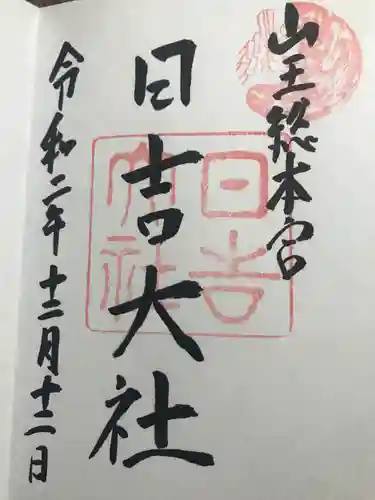 山王総本宮
日吉大社
日吉
大社
令和二年十二月十二日